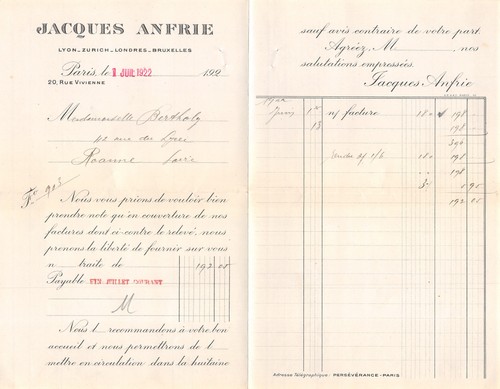 JACQUES ANFRIE
LYON_ZURICH_LONDRES_BRUXELLES
Paris, le 1 JUIL 1922 192
20, RUE VIVIENNE
Mademoiselle Bertholy
42 rue du Lycée
Roanne Loire
Nous vous prions de vouloir bien
prendre note qu'en couverture de nos
factures dont ci-contre le relevé, nous
prenons la liberté de fournir sur vous
n traite de 192 05
Payable FIN JUILLET COURANT
M
Nous l recommandons à votre bon
accueil et nous permettrons de l
mettre en circulation dans la huitaine
sauf avis contraire de votre part.
Agréez, M nos
salutations empressées.
Jacques Anfrie
1922
Juin 1er n/ facture 180 198
13 198
396
180 198
198
3% 5 95
192 05
Adresse Télégraphique: PERSÉVÉRANCE-PARIS